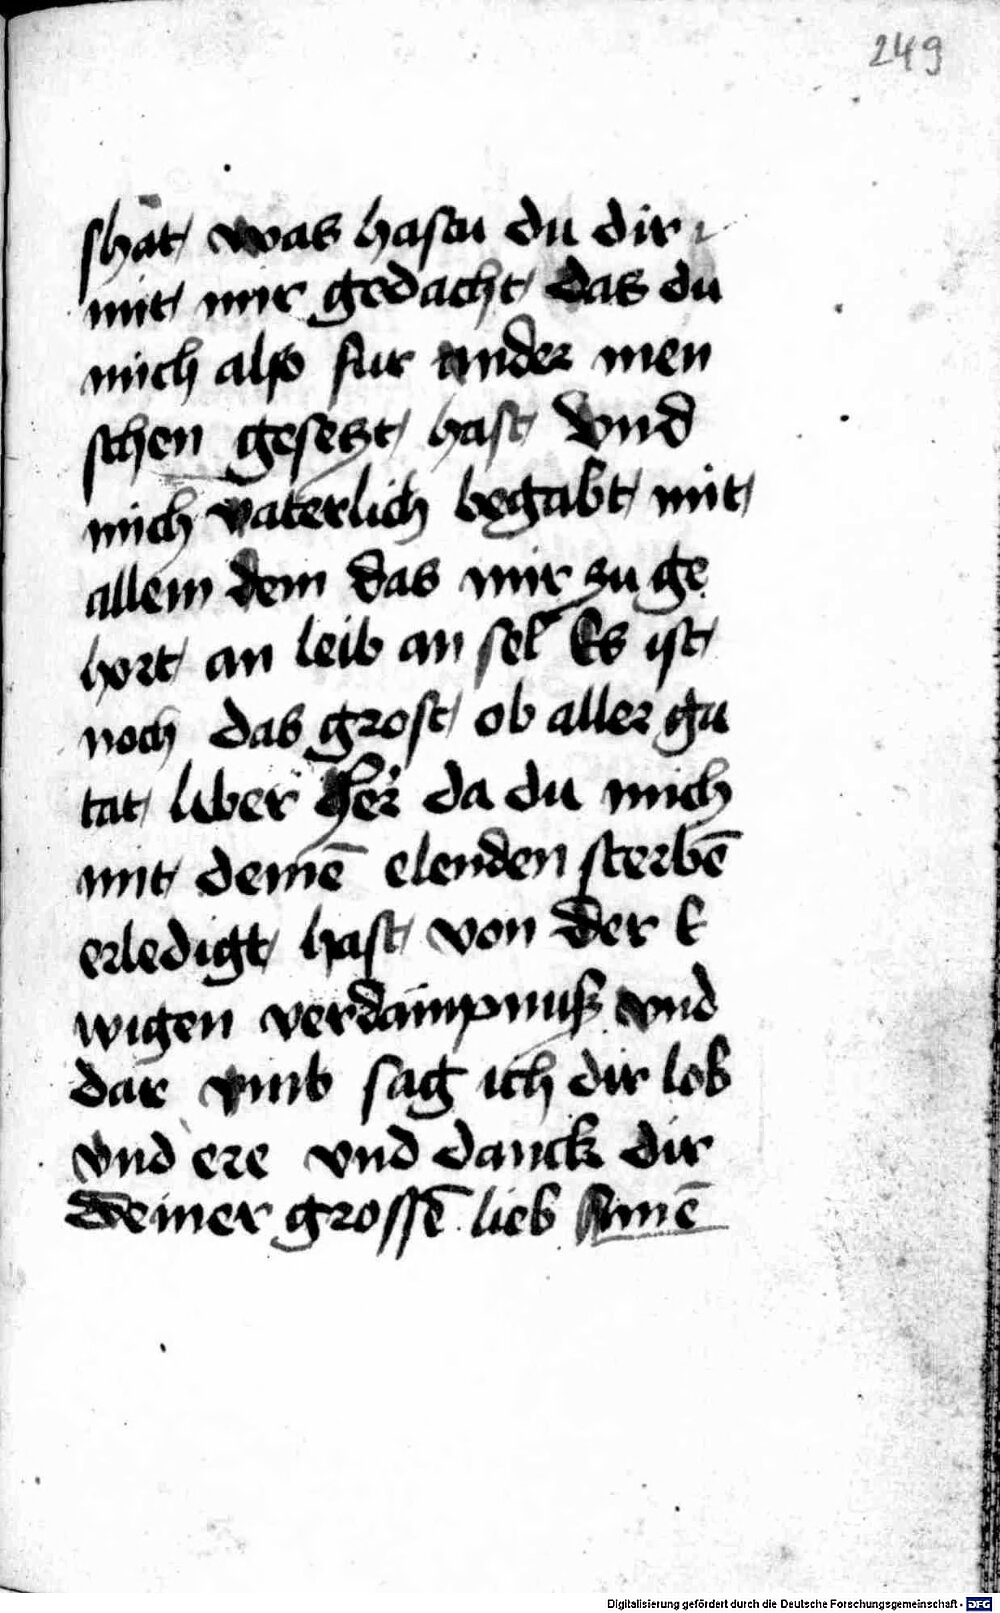 249
shat was hastu du dir
mit mir gedacht das du
mich also fur ander men
schen geseczt hast Vnd
mich vaterlich begabt mit
allem dem das mir zu ge
hort an leib an sel Es ist
noch das grost ob aller gu
tat liber her da du mich
mit deinē elenden sterbē
erledigt hast von der E
wigen verdampnuß vnd
dar vmb sag ich dir lob
vnd ere vnd danck dir
deiner grossē lieb Amē
Digitalisierung gefördert durch die Deutsche Forschungsgemeinschaft - DFG